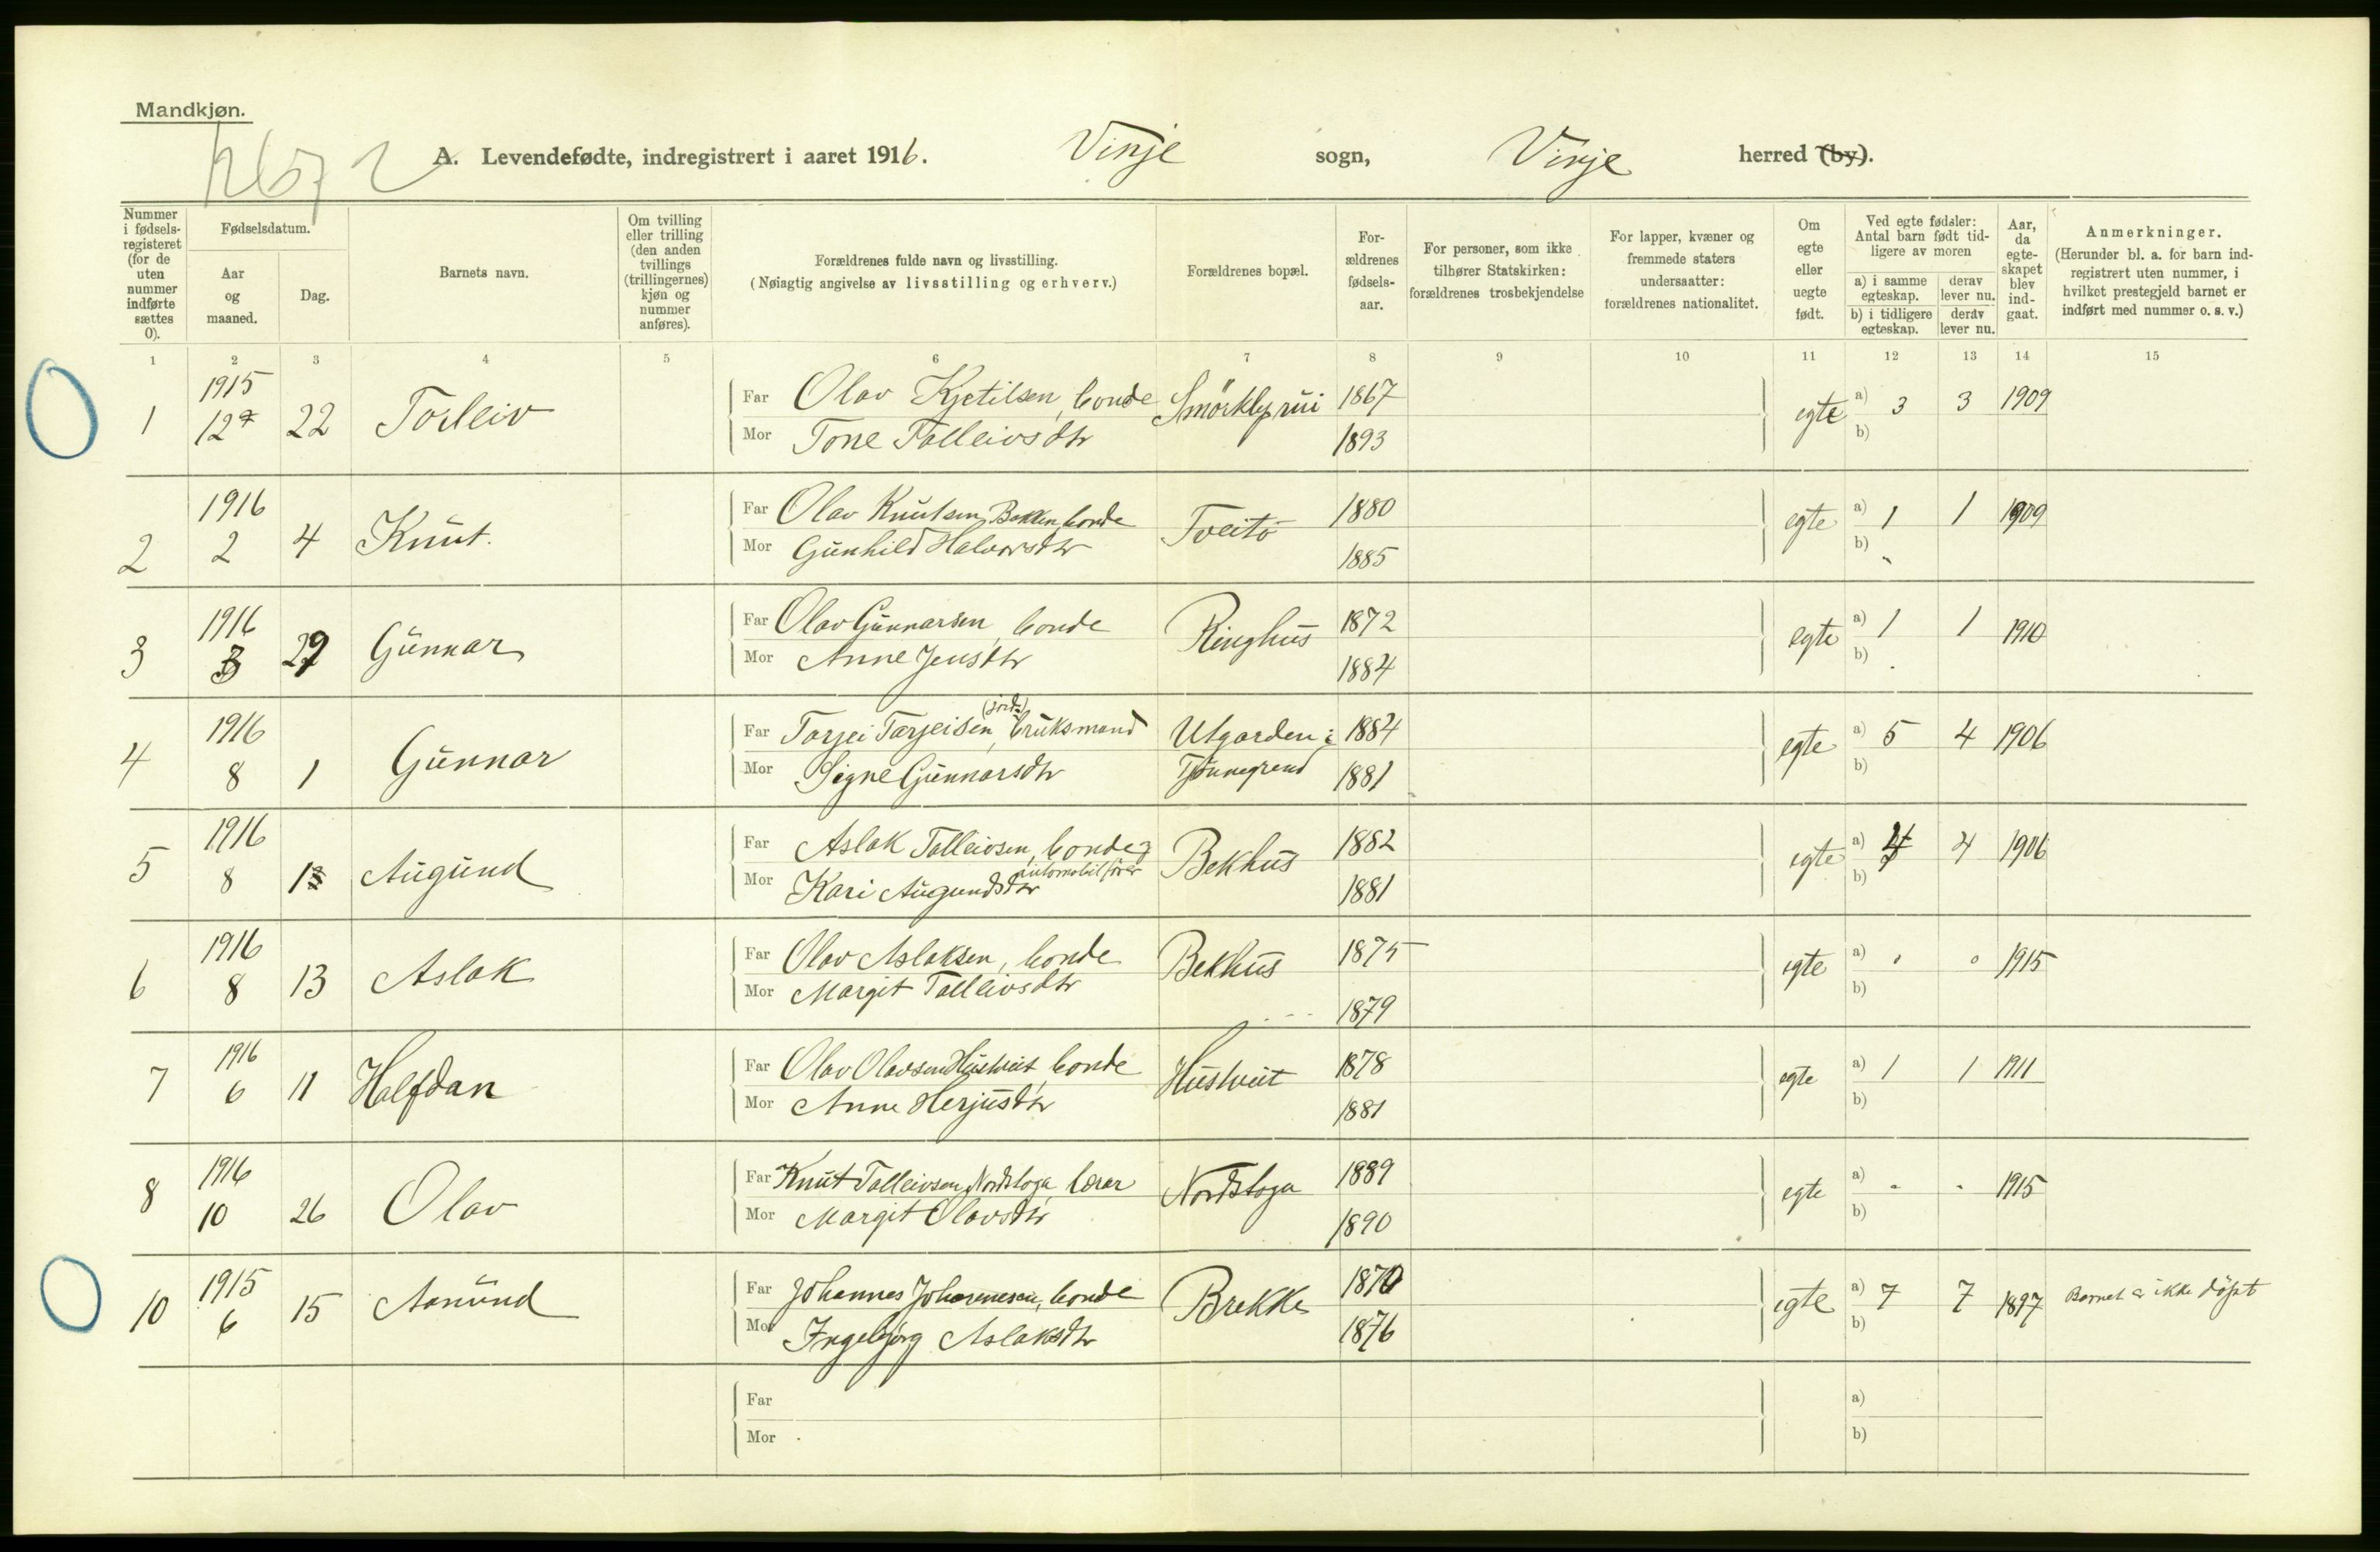 Mandkjøn.
A. Levendefødte, indregistrert i aaret 1916. Vinje sogn, Vinje herred (by).
Nummer i fødsels-registeret (for de uten nummer indførte sættes 0).
Fødselsdatum.
Aar og maaned.
Dag.
Barnets navn.
Om tvilling eller trilling (den anden tvillings (trillingernes) kjøn og nummer anføres).
Forældrenes fulde navn og livsstilling.
(Nøiagtig angivelse av livsstilling og erhverv.)
Forældrenes bopæl.
For-ældrenes fødsels-aar.
For personer, som ikke tilhører Statskirken: forældrenes trosbekjendelse
For lapper, kvæner og fremmede staters undersaatter: forældrenes nationalitet.
Om egte eller uegte født.
Ved egte fødsler: Antal barn født tid-ligere av moren
a) i samme egteskap. derav lever nu.
b) i tidligere egteskap. derav lever nu.
Aar, da egte-skapet blev ind-gaat.
Anmerkninger.
(Herunder bl. a. for barn ind-registrert uten nummer, i hvilket prestegjeld barnet er indført med nummer o. s. v.)
1 2 3 4 5 6 7 8 9 10 11 12 13 14 15
1 1915 12 22 Torleiv Far Olav Kjetilsen, bonde Smørkleprui 1867 egte a) 3 3 1909
Mor Tone Tolleivsdtr 1893 b)
2 1916 2 4 Knut. Far Olav Knutsen Bakken, bonde Tveito 1880 egte a) 1 1 1909
Mor Gunhild Halvorsdtr 1885 b)
3 1916 3 29 Gunnar Far Olav Gunnarsen, bonde Ringhus 1872 egte a) 1 1 1910
Mor Anne Jensdtr 1884 b)
4 1916 8 1 Gunnar Far Tarjei Tarjeisen, (jord-)bruksmand Utgarden i 1884 egte a) 5 4 1906
Mor Signe Gunnarsdtr Tjønnegrend 1881 b)
5 1916 8 13 Augund Far Aslak Tolleivsen, bonde og automobilfører Bekhus 1882 egte a) 4 4 1906
Mor Kari Augundsdtr 1881 b)
6 1916 8 13 Aslak Far Olav Aslaksen, bonde Bekhus 1875 egte a) 0 0 1915
Mor Margit Tolleivsdtr 1879 b)
7 1916 6 11 Halfdan Far Olav Olavsen Hustveit, bonde Hustveit 1878 egte a) 1 1 1911
Mor Anne Herjusdtr 1881 b)
8 1916 10 26 Olav Far Knut Tolleivsen Nordstoga, lærar Nordstoga 1889 egte a) - - 1915
Mor Margit Olavsdtr 1890 b)
10 1915 6 15 Amund Far Johannes Johannesen, bonde Brekke 1870 egte a) 7 7 1897 Barnet er ikke døpt
Mor Ingebjørg Aslaksdtr 1876 b)
Far a)
Mor b)